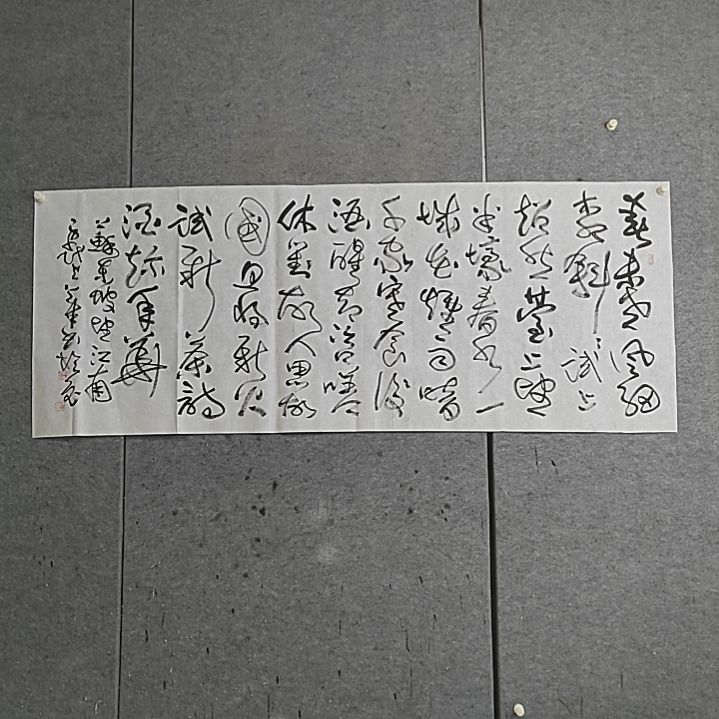 春未老风細
柳斜斜试上
超然臺上望
半壕春水一
城花煙雨暗
千家寒食後
酒醒却咨嗟
休對故人思故
國且将新火
試新茶詩
酒趁年華
蘇東坡望江南